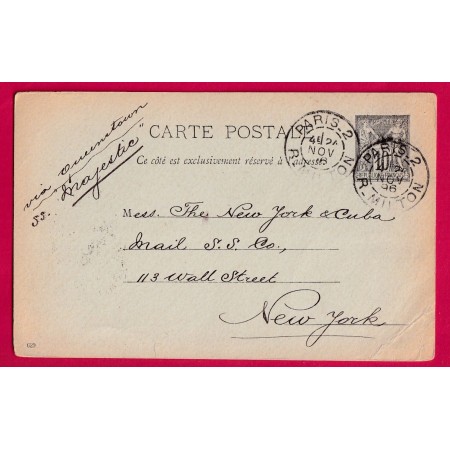 via Queenstown
SS. "Majestic"
CARTE POSTALE
Ce côté est exclusivement réservé à l'adresse.
PARIS_2
4E 24
NOV
96
R-MILTON
PARIS_2
NOV
96
R-MILTON
10
Mess. The New York & Cuba
Mail S.S. Co.,
113 Wall Street
New York